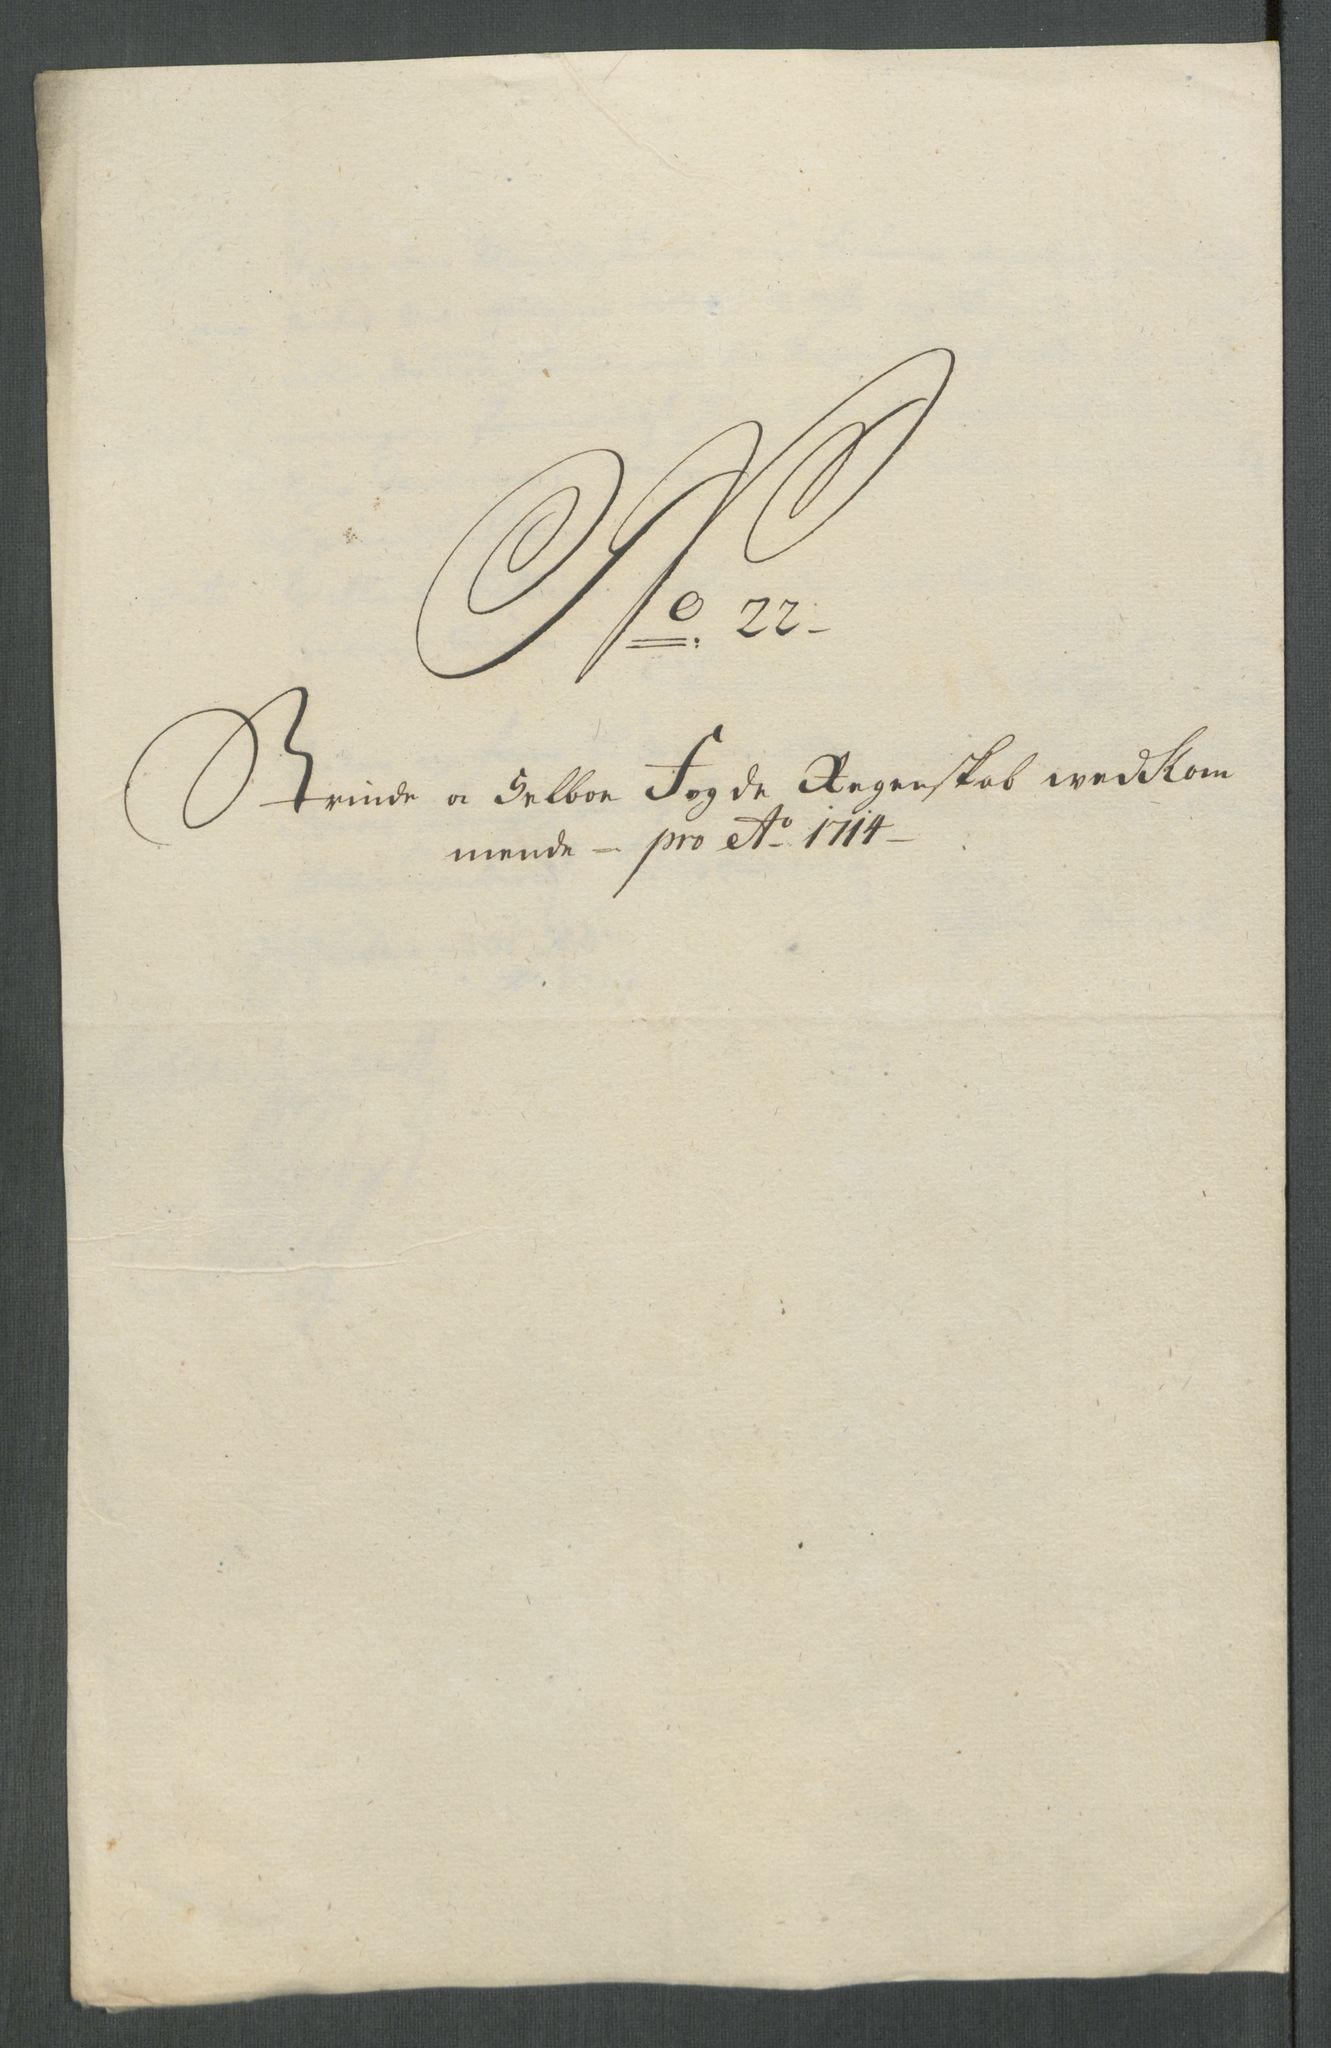 No. 22-
Strinde oc Selboe Fogde Regenskab wedkom
mende - pro Ao 1714-